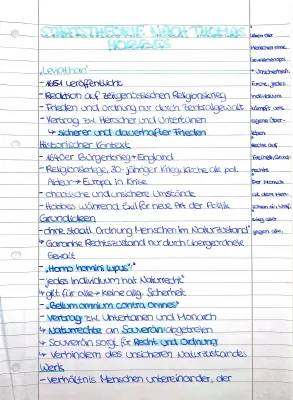 STAATSTHEORIE NACH THOMAS
HOBBES
"Leviathan"
- 1651 veröffentlicht
- Reaktion auf zeitgenössischen Religionskrieg
- Frieden und Ordnung nur durch Zentralgewalt
- Vertrag zw. Herrscher und Untertanen
↳ sicherer und dauerhafter Frieden
Historischer Kontext
- 1640er Bürgerkrieg → England
- Religionskriege, 30-jähriger Krieg, Kirche als pol.
→ Europa in Krise
- chaotische und unsichere Umstände
- Hobbes während Exil für neue Art der Politik
Grundideen
- ohne staatl. Ordnung Menschen im "Naturzustand"
↳ Garantie Rechtszustand nur durch übergeordnete
Gewalt
- "Homo homini lupus"
- jedes Individuum hat "Naturrecht"
↳ gilt für alle → keine allg. Sicherheit
- "Bellum omnium contra omnes"
- Vertrag zw. Untertanen und Monarch
↳ Naturrechte an Souverän abgetreten
↳ Souverän sorgt für Recht und Ordnung
↳ Verhindern des unsicheren Naturzustandes
Werk
- Verhältnis Menschen untereinander, der
Menschen ohne
Kirche, jedes
Individuum
kämpft um
leben
Recht auf
rechte
Der Mensch
ist dem Men-
gegen alle,